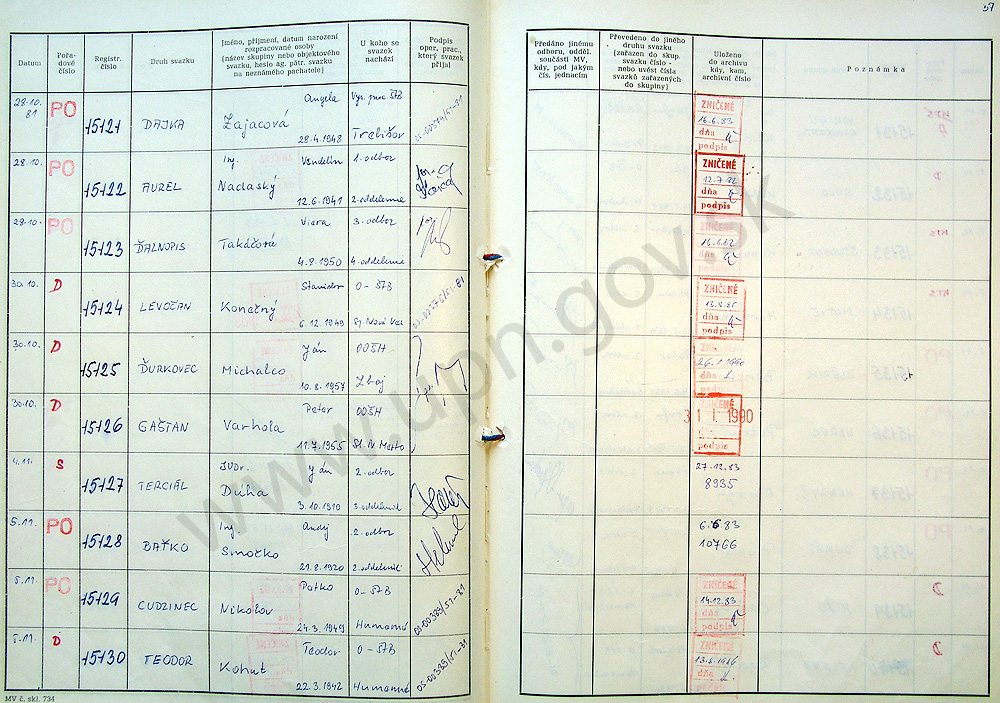 57
Datum
Pořa-
dové
číslo
Registr.
číslo
Druh svazku
Jméno, příjmení, datum narození
rozpracované osoby
(název skupiny nebo objektového
svazku, heslo ag. pátr. svazku
na neznámého pachatele)
U koho se
svazek
nachází
Podpis
oper. prac.,
který svazek
přijal
Předáno jinému
odboru, odděl.
součásti MV,
kdy, pod jakým
čís. jednacím
Převedeno do jiného
druhu svazku
(zařazen do skup.
svazku číslo -
nebo uvést čísla
svazků zařazených
do skupiny)
Uloženo
do archivu
kdy, kam,
archivní číslo
Poznámka
28.10.
81
PO
15121
DAJKA
Angela
Zajacová
28.4.1948
Vys. prac. ŠTB
Trebišov
ZNIČENÉ
16.6.83
dňa
podpis
28.10.
PO
15122
AUREL
Ing. Vendelín
Nadaský
12.6.1941
1. odbor
2. oddelenie
ZNIČENÉ
12.7.82
dňa
podpis
29.10.
PO
15123
ĎALNOPIS
Viera
Takáčová
4.8.1950
3. odbor
4. oddelenie
ZNIČENÉ
16.6.82
dňa
podpis
30.10.
D
15124
LEVOČAN
Stanislav
Konečný
6.12.1949
O-ŠTB
Sp. Nová Ves
ZNIČENÉ
dňa
podpis
30.10.
D
15125
ĎURKOVEC
Ján
Michalco
10.8.1957
OOŠH
Zboj
ZNIČENÉ
26.1.1990
dňa
podpis
30.10.
D
15126
GAŠTAN
Peter
Varhola
11.7.1955
OOŠH
ZNIČENÉ
31.1.1990
podpis
4.11.
S
15127
TERCIÁL
JUDr. Ján
Dúha
3.10.1910
2. odbor
27.12.83
8935
5.11.
PO
15128
BAŤKO
Ing.
Smočko
21.8.1920
2. odbor
2. oddelenie
6.6.83
10766
5.11.
PO
15129
CUDZINEC
Nikolov
24.3.1949
O-ŠTB
Humenné
ZNIČENÉ
14.12.83
dňa
podpis
5.11.
D
15130
TEODOR
Teodor
Kohut
22.3.1942
O-ŠTB
Humenné
ZNIČENÉ
dňa
podpis
MV č. skl. 734
www.upn.gov.sk